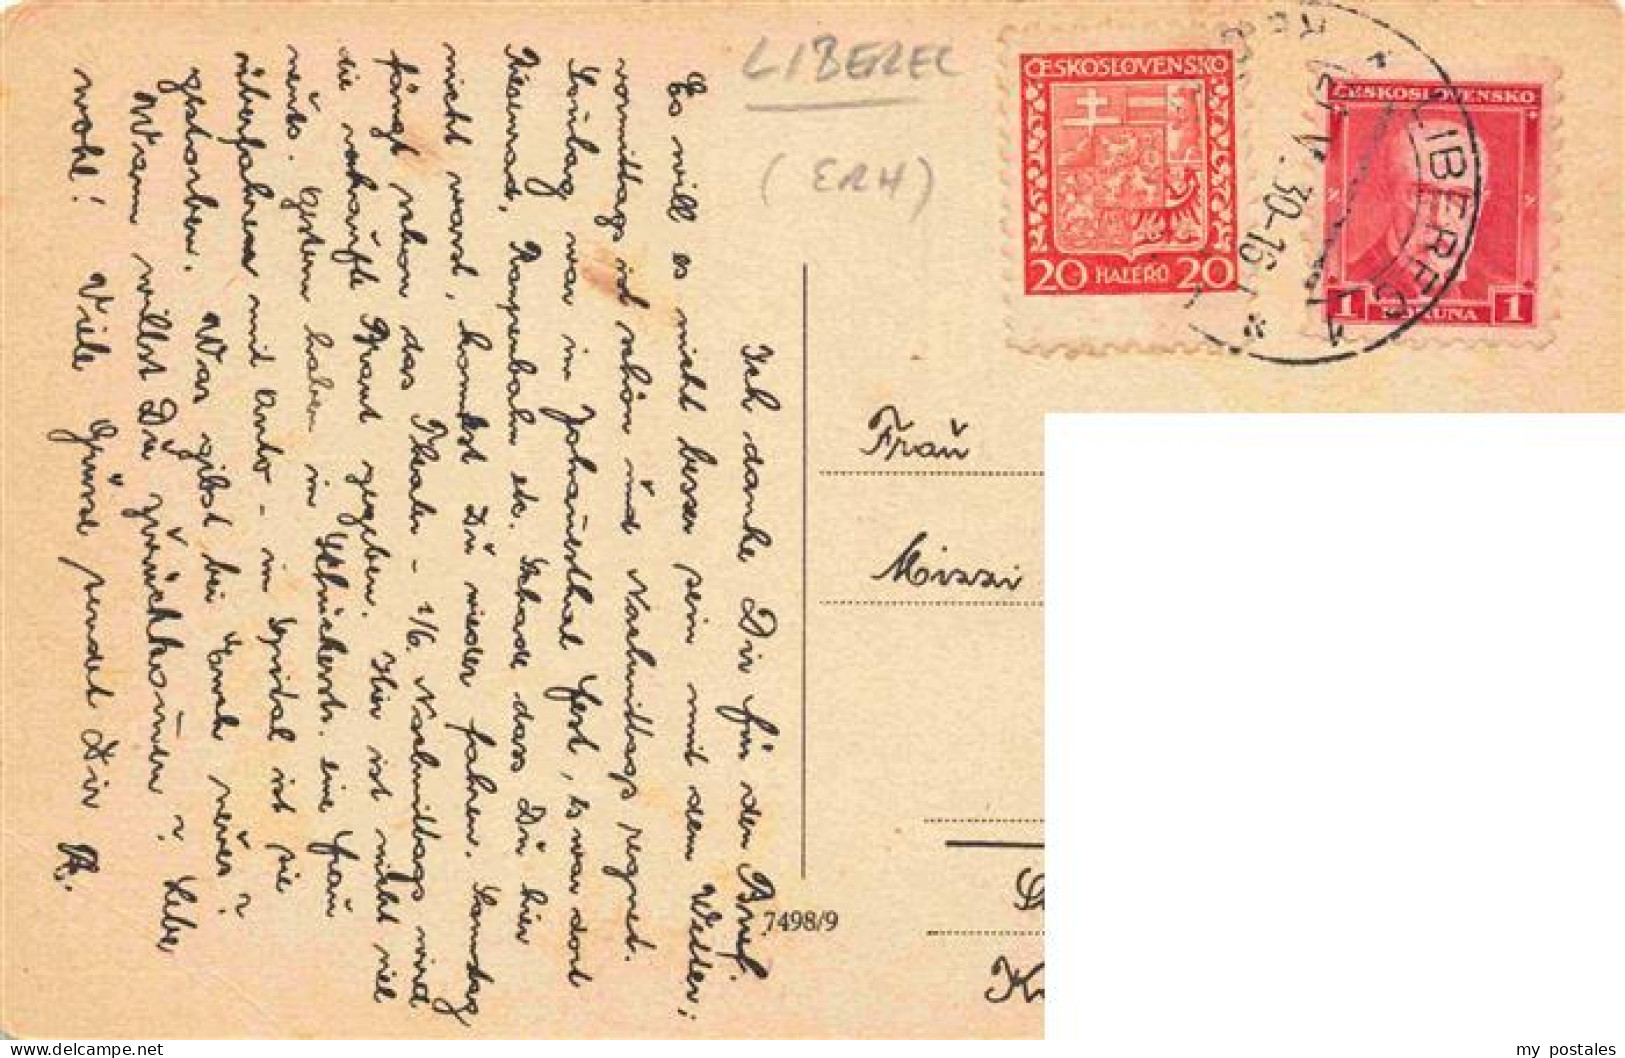 LIBEREC
(ERH)
ČESKOSLOVENSKO
20 HALÉŘŮ 20
ČESKOSLOVENSKO
1 KORUNA 1
LIBEREC
V. 30-16
Ich danke Dir für den Brief.
Es will es nicht besser sein mit dem Wetter;
vormittags ist schön und Nachmittags regnet.
Sonntag war in Johannesthal Fest, es war dort
Riesenrad, etc. Schade dass Du hier
nicht warst, kommst Du wieder fahren. Samstag
fängt schon das Theater - 1/6. Nachmittags wird
die verkaufte Braut gegeben. Hier ist nicht viel
neues. Gestern haben in eine Frau
überfahren mit Auto - im Spital ist sie
gestorben. Was gibst bei Euch neues?
Wann willst Du zurückkommen? Lebe
wohl! Viele Grüsse sendet Dir
Frau
Mizzi
7498/9
www.delcampe.net
my_postales